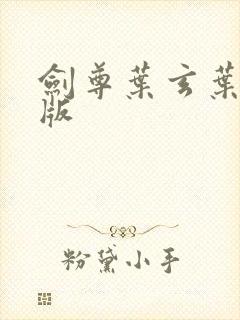 劍尊葉玄葉
版
粉黛小手